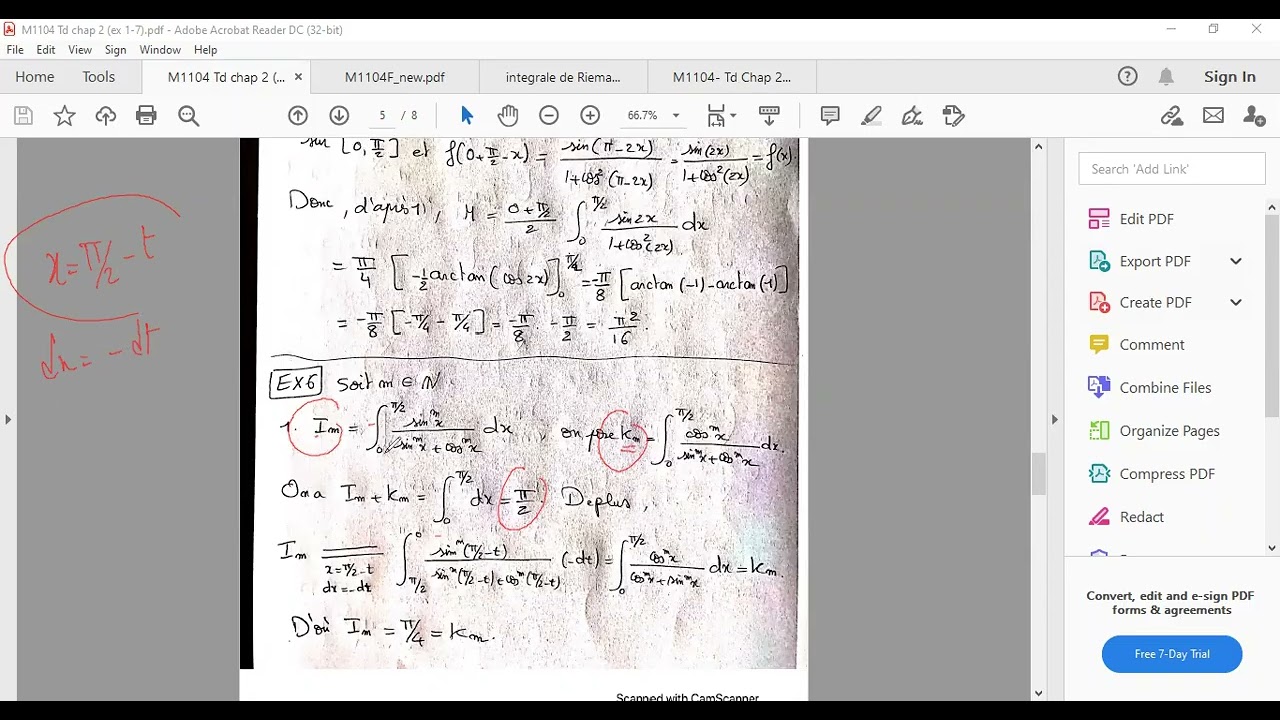 M1104 Td chap 2 (ex 1-7).pdf - Adobe Acrobat Reader DC (32-bit)
File Edit View Sign Window Help
Home Tools M1104 Td chap 2 (... × M1104F_new.pdf integrale de Riema... M1104- Td Chap 2... Sign In
5 / 8 66.7%
sur [0, π/2] et f(0+π/2-x) = sin(π-2x)/(1+cos²(π-2x)) = sin(2x)/(1+cos²(2x)) = f(x).
Donc, d'après 1), M = (0+π/2)/2 ∫₀^{π/2} sin2x/(1+cos²(2x)) dx
= π/4 [-1/2 arctan(cos2x)]₀^{π/2} = -π/8 [arctan(-1)-arctan(1)]
= -π/8 [-π/4 - π/4] = -π/8 · -π/2 = π²/16.
x = π/2 - t
dx = -dt
EX6 Soit m ∈ N
1. Im = ∫₀^{π/2} sin^m x/(sin^m x + cos^m x) dx on pose Km = ∫₀^{π/2} cos^m x/(sin^m x + cos^m x) dx.
On a Im + Km = ∫₀^{π/2} dx = π/2. De plus,
Im = ∫_{π/2}^0 sin^m(π/2-t)/(sin^m(π/2-t)+cos^m(π/2-t)) (-dt) = ∫₀^{π/2} cos^m x/(cos^m x + sin^m x) dx = Km.
x=π/2-t
dx=-dt
D'où Im = π/4 = Km.
Scanned with CamScanner
Search 'Add Link'
Edit PDF
Export PDF
Create PDF
Comment
Combine Files
Organize Pages
Compress PDF
Redact
Convert, edit and e-sign PDF
forms & agreements
Free 7-Day Trial